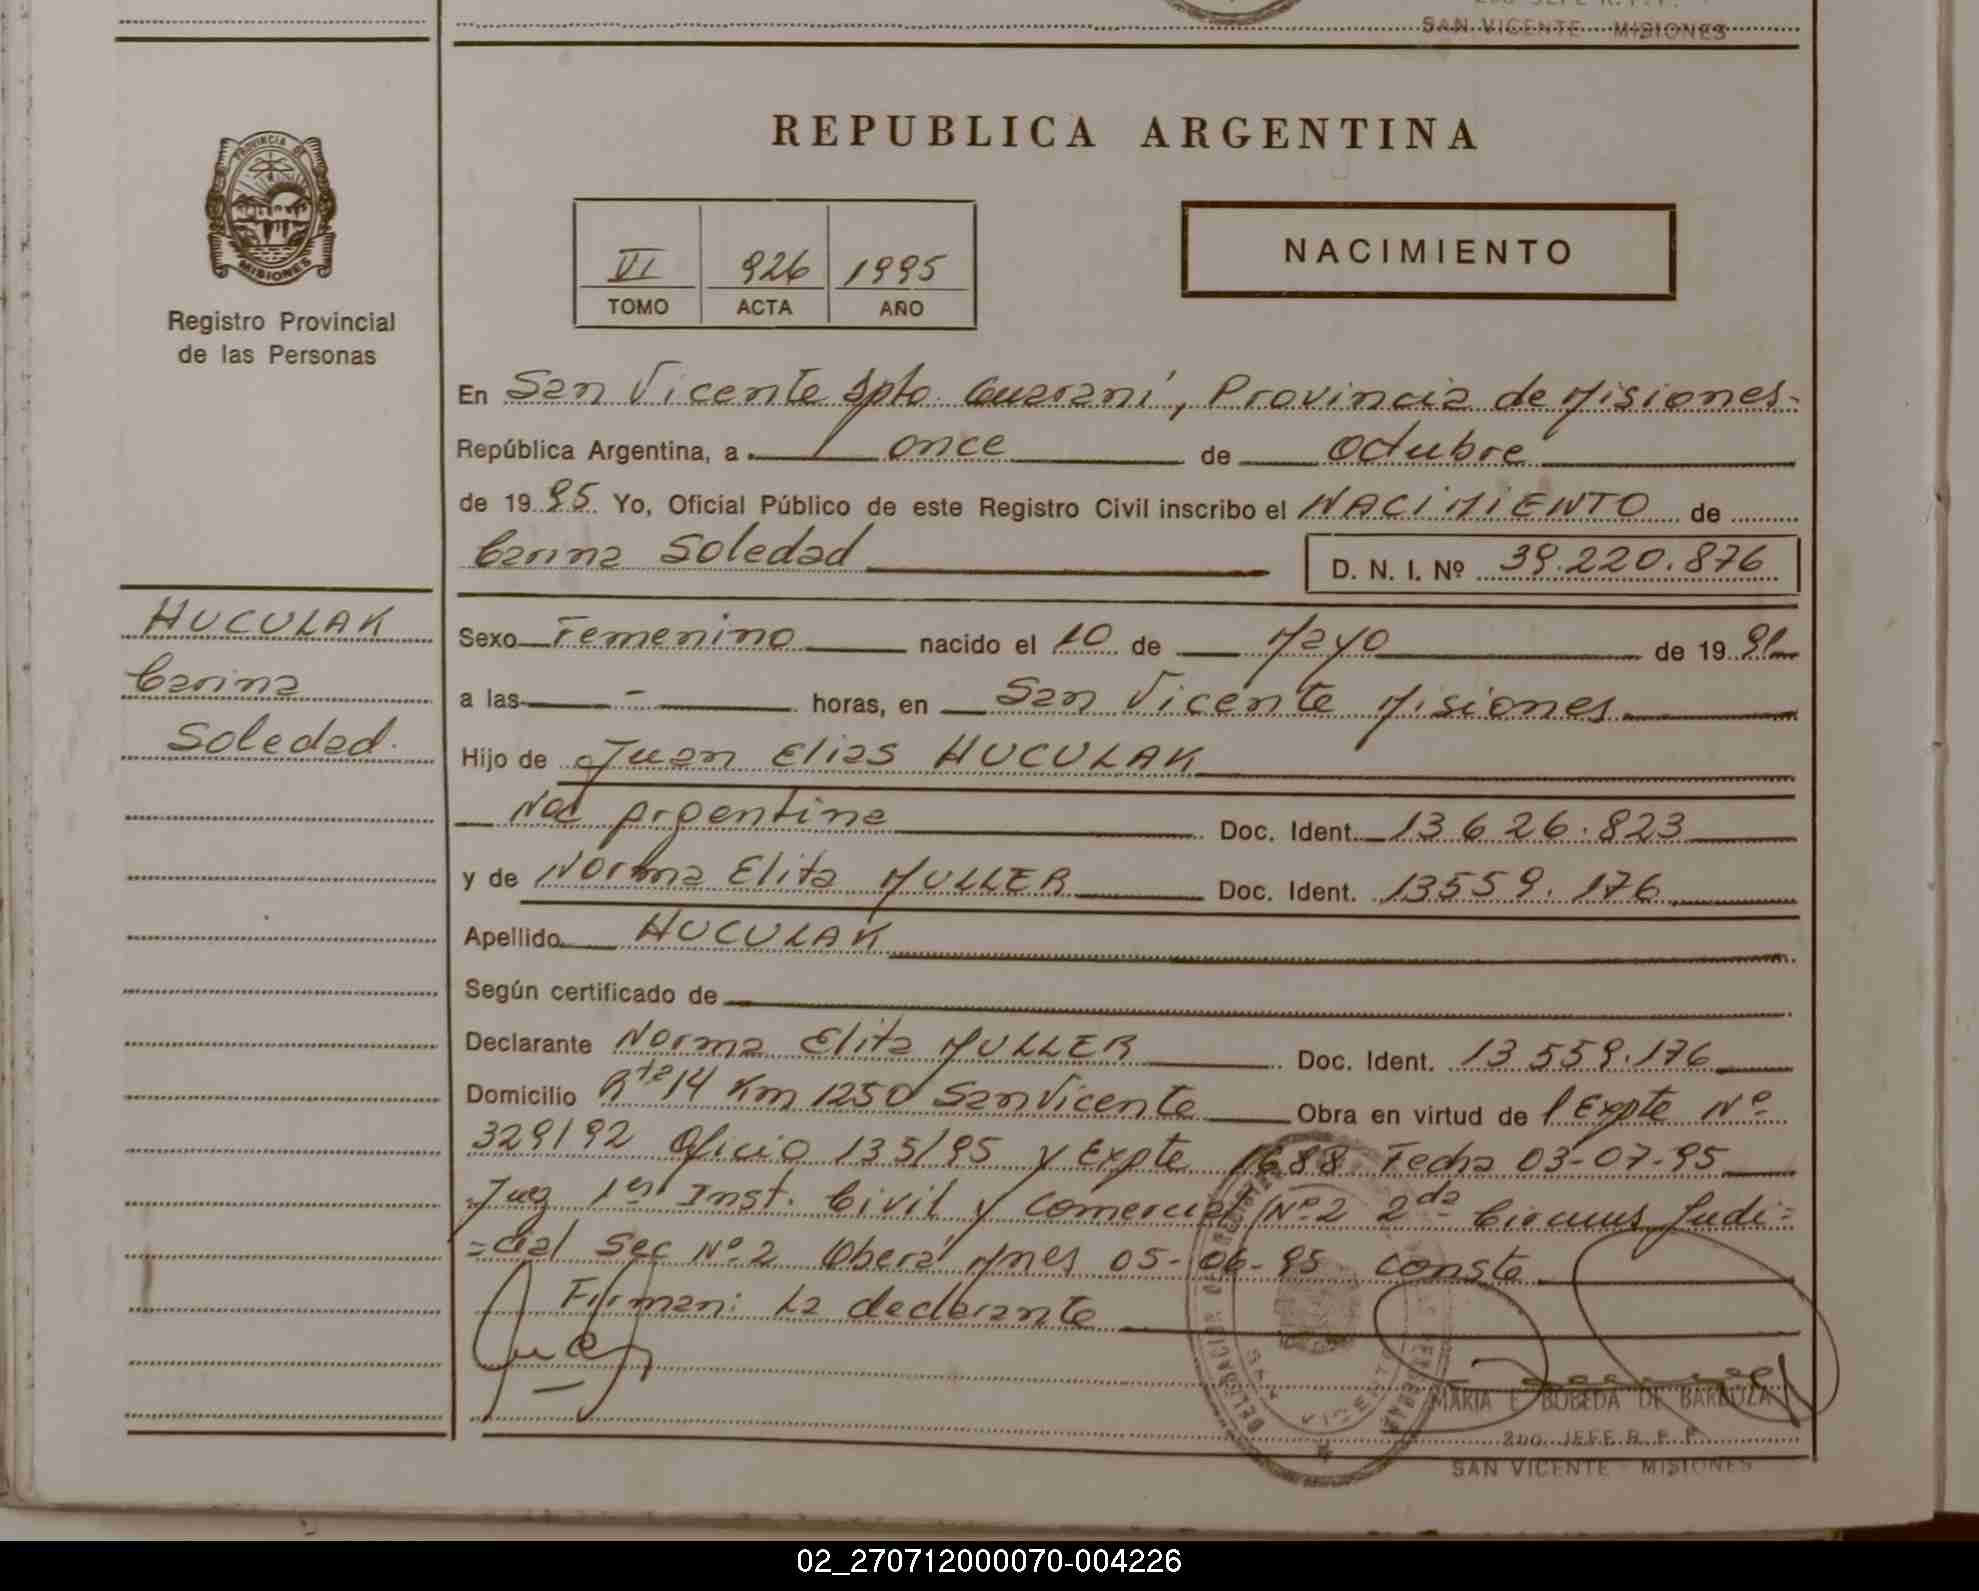 SAN VICENTE MISIONES
PROVINCIA DE
MISIONES
Registro Provincial
de las Personas
REPUBLICA ARGENTINA
VI 926 1995
TOMO ACTA AÑO
NACIMIENTO
En San Vicente Dpto. Guaraní, Provincia de Misiones-
República Argentina, a once de Octubre
de 1995 Yo, Oficial Público de este Registro Civil inscribo el NACIMIENTO de
Carina Soledad D. N. I. Nº 39.220.876
HUCULAK
Carina
Soledad.
Sexo Femenino nacido el 10 de Mayo de 19 91
a las - horas, en San Vicente Misiones
Hijo de Juan Elias HUCULAK
Nac Argentina Doc. Ident. 13626.823
y de Norma Elita MULLER Doc. Ident. 13559.176
Apellido HUCULAK
Según certificado de
Declarante Norma Elita MULLER Doc. Ident. 13.559.176
Domicilio Rta 14 Km 1250 San Vicente Obra en virtud de l Expte Nº
329/92 Oficio 135/95 y Expte 1688 Fecha 03-07-95
Juz 1era Inst. Civil y Comercial Nº2 2da Circuns Judi=
=cial Sec Nº 2 Oberá Mnes 05-06-95 Conste
Firman: La declarante
MARIA E BOBEDA DE BARBOZA
2DO. JEFE R. P. P.
SAN VICENTE - MISIONES
02_270712000070-004226